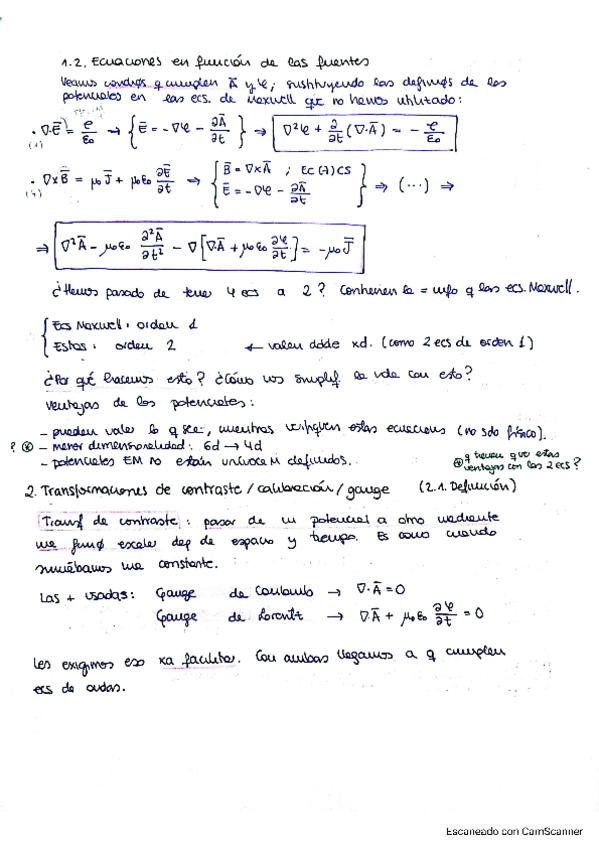 1.2. Ecuaciones en función de las fuentes
Veamos condics q cumplen Ā y φ; sustituyendo las definics de los
potenciales en las ecs. de Maxwell que no hemos utilizado:
• ∇·Ē = ρ/ε₀ → { Ē = -∇φ - ∂Ā/∂t } → ∇²φ + ∂/∂t (∇·Ā) = - ρ/ε₀
(1)
• ∇×B̄ = μ₀J̄ + μ₀ε₀ ∂Ē/∂t → { B̄ = ∇×Ā ; EC(7)CS
(4) Ē = -∇φ - ∂Ā/∂t } ⇒ (···) ⇒
⇒ ∇²Ā - μ₀ε₀ ∂²Ā/∂t² - ∇[∇·Ā + μ₀ε₀ ∂φ/∂t] = -μ₀J̄
¿Hemos pasado de tener 4 ecs a 2? Contienen la = info q las ecs. Maxwell.
{ Ecs Maxwell: orden 1
Estas: orden 2 ← valen doble xd. (como 2 ecs de orden 1)
¿Por qué hacemos esto? ¿Cómo nos simplif la vida con esto?
Ventajas de los potenciales:
- pueden valer lo q sea, mientras verifiquen estas ecuaciones (no sdo físico).
? ⊛ - menor dimensionalidad: 6d → 4d
- potenciales EM no están unívocam definidos.
⊛ q tienen que estas
ventajas con las 2 ecs?
2. Transformaciones de contraste / calibración / gauge (2.1. Definición)
Transf de contraste: pasar de un potencial a otro mediante
una func escalar dep de espacio y tiempo. Es como cuando
sumábamos una constante.
Las + usadas: Gauge de Coulomb → ∇·Ā = 0
Gauge de Lorentz → ∇·Ā + μ₀ε₀ ∂φ/∂t = 0
Les exigimos eso xa facilitar. Con ambas llegamos a q cumplen
ecs de ondas.
Escaneado con CamScanner